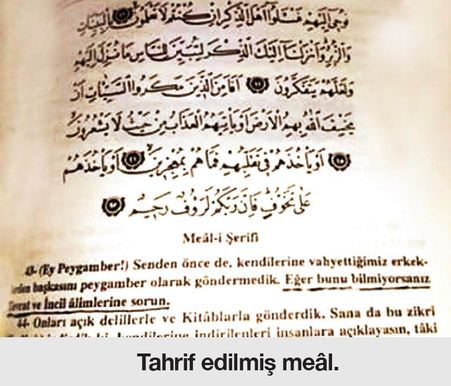 نُوحِى اِلَيْهِمْ فَسْـَٔلُٓوا اَهْلَ الذِّكْرِ اِنْ كُنْتُمْ لَا تَعْلَمُونَ بِالْبَيِّنَاتِ
وَالزُّبُرِ وَاَنْزَلْنَٓا اِلَيْكَ الذِّكْرَ لِتُبَيِّنَ لِلنَّاسِ مَا نُزِّلَ اِلَيْهِمْ
وَلَعَلَّهُمْ يَتَفَكَّرُونَ اَفَاَمِنَ الَّذِينَ مَكَرُوا السَّيِّـَٔاتِ اَنْ
يَخْسِفَ اللّٰهُ بِهِمُ الْاَرْضَ اَوْ يَاْتِيَهُمُ الْعَذَابُ مِنْ حَيْثُ لَا يَشْعُرُونَ
اَوْ يَاْخُذَهُمْ فِى تَقَلُّبِهِمْ فَمَا هُمْ بِمُعْجِزِينَ اَوْ يَاْخُذَهُمْ
عَلٰى تَخَوُّفٍ فَاِنَّ رَبَّكُمْ لَرَؤُفٌ رَحِيمٌ
Meâl-i Şerifi
43- (Ey Peygamber!) Senden önce de, kendilerine vahyettiğimiz erkek-
lerden başkasını peygamber olarak göndermedik. Eğer bunu bilmiyorsanız
Tevrat ve İncil âlimlerine sorun.
44- Onları açık delillerle ve Kitâblarla gönderdik. Sana da bu zikri
kendilerine indirilenleri insanlara açıklayasın, tâki
Tahrif edilmiş meâl.